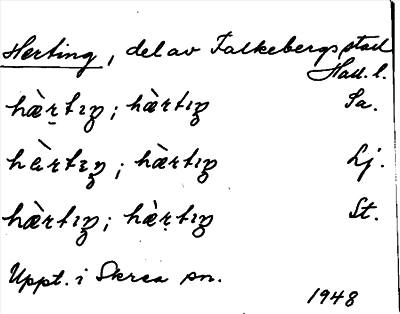 Herting, del av Falkebergs stad
Hall. l.
hæ̀r̤tıŋ; hæ̀rtıŋ Sa.
hàrtıŋ; hæ̀rtıŋ Lj.
hæ̀rtıŋ; hæ̀ṛtıŋ St.
Uppt. i Skrea sn.
1948